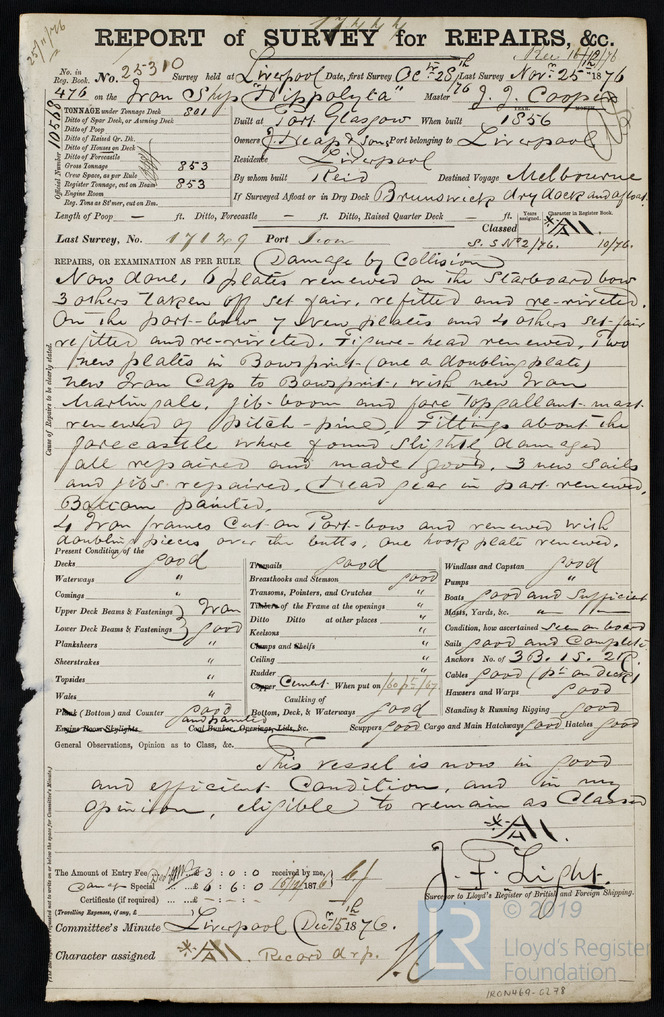 25/11/76
REPORT of SURVEY for REPAIRS, &c.
Rec 16/12/76
No. in Reg. Book. No. 25310 Survey held at Liverpool Date, first Survey Oct 28th /76 Last Survey Novr 25th 1876
476 on the Iron Ship "Hippolyta" Master J. J. Cooper
Official Number 10568
TONNAGE under Tonnage Deck 801
Ditto of Spar Deck, or Awning Deck
Ditto of Poop
Ditto of Raised Qr. Dk.
Ditto of Houses on Deck
Ditto of Forecastle
Gross Tonnage 853
Crew Space, as per Rule
Register Tonnage, cut on Beam 853
Engine Room
Reg. Tons as St'mer, cut on Bm.
YEAR. MONTH.
Built at Port Glasgow When built 1856
Owners J. Heap & Sons Port belonging to Liverpool
Residence Liverpool
By whom built Reid Destined Voyage Melbourne
If Surveyed Afloat or in Dry Dock Brunswick dry dock and afloat.
Length of Poop — ft. Ditto, Forecastle — ft. Ditto, Raised Quarter Deck — ft.
Years assigned. Character in Register Book.
Classed
Last Survey, No. 17129 Port Iron S.S No 2/76. 10/76.
REPAIRS, OR EXAMINATION AS PER RULE (Damage by Collision)
Cause of Repairs to be clearly stated.
Now done, 6 plates renewed on the Starboard bow
3 others taken off set fair, refitted and re-riveted.
On the port-bow 7 new plates and 4 others set-fair
refitted and re-riveted. Figure-head renewed, Two
new plates in Bowsprit (one a doubling plate)
new Iron Cap to Bowsprit, with new Iron
Martingale, jib-boom and fore Topgallant-mast
renewed of pitch-pine. Fittings about the
forecastle where found slightly damaged
all repaired and made good. 3 new sails
and jibs repaired. Head gear in part renewed.
Bottom painted.
4 Iron frames cut on Port-bow and renewed with
doubling pieces over the butts, one hook plate renewed.
Present Condition of the
Decks good
Waterways "
Comings "
Upper Deck Beams & Fastenings } Iron
Lower Deck Beams & Fastenings } good
Planksheers "
Sheerstrakes "
Topsides "
Wales "
Plank (Bottom) and Counter good and painted
Engine Room Skylights Coal Bunker, Openings, Lids, &c.
Treenails good
Breasthooks and Stemson good
Transoms, Pointers, and Crutches "
Timbers of the Frame at the openings "
Ditto Ditto at other places "
Keelsons "
Clamps and Shelfs "
Ceiling "
Rudder "
Copper Cement. When put on
Caulking of
Bottom, Deck, & Waterways good
Scuppers good Cargo and Main Hatchways good Hatches good
Windlass and Capstan good
Pumps "
Boats good and Sufficient
Masts, Yards, &c. " "
Condition, how ascertained seen on board
Sails good and Complete
Anchors No. of 3B. 1S. 2K.
Cables good (pt on deck)
Hawsers and Warps good
Standing & Running Rigging good
General Observations, Opinion as to Class, &c.
This vessel is now in good
and efficient Condition, and in my
opinion, eligible to remain as Classed
The Amount of Entry Fee £ 3 : 0 : 0 received by me,
Damage Special £ 6 : 6 : 0 16/12/1876
Certificate (if required) £ - : - : -
(Travelling Expenses, if any, £
J. F. Light.
Surveyor to Lloyd's Register of British and Foreign Shipping.
Committee's Minute Liverpool Decr 15th 1876.
Character assigned Record drp.
© 2019
LR
Lloyd's Register
Foundation
IRON469-0278